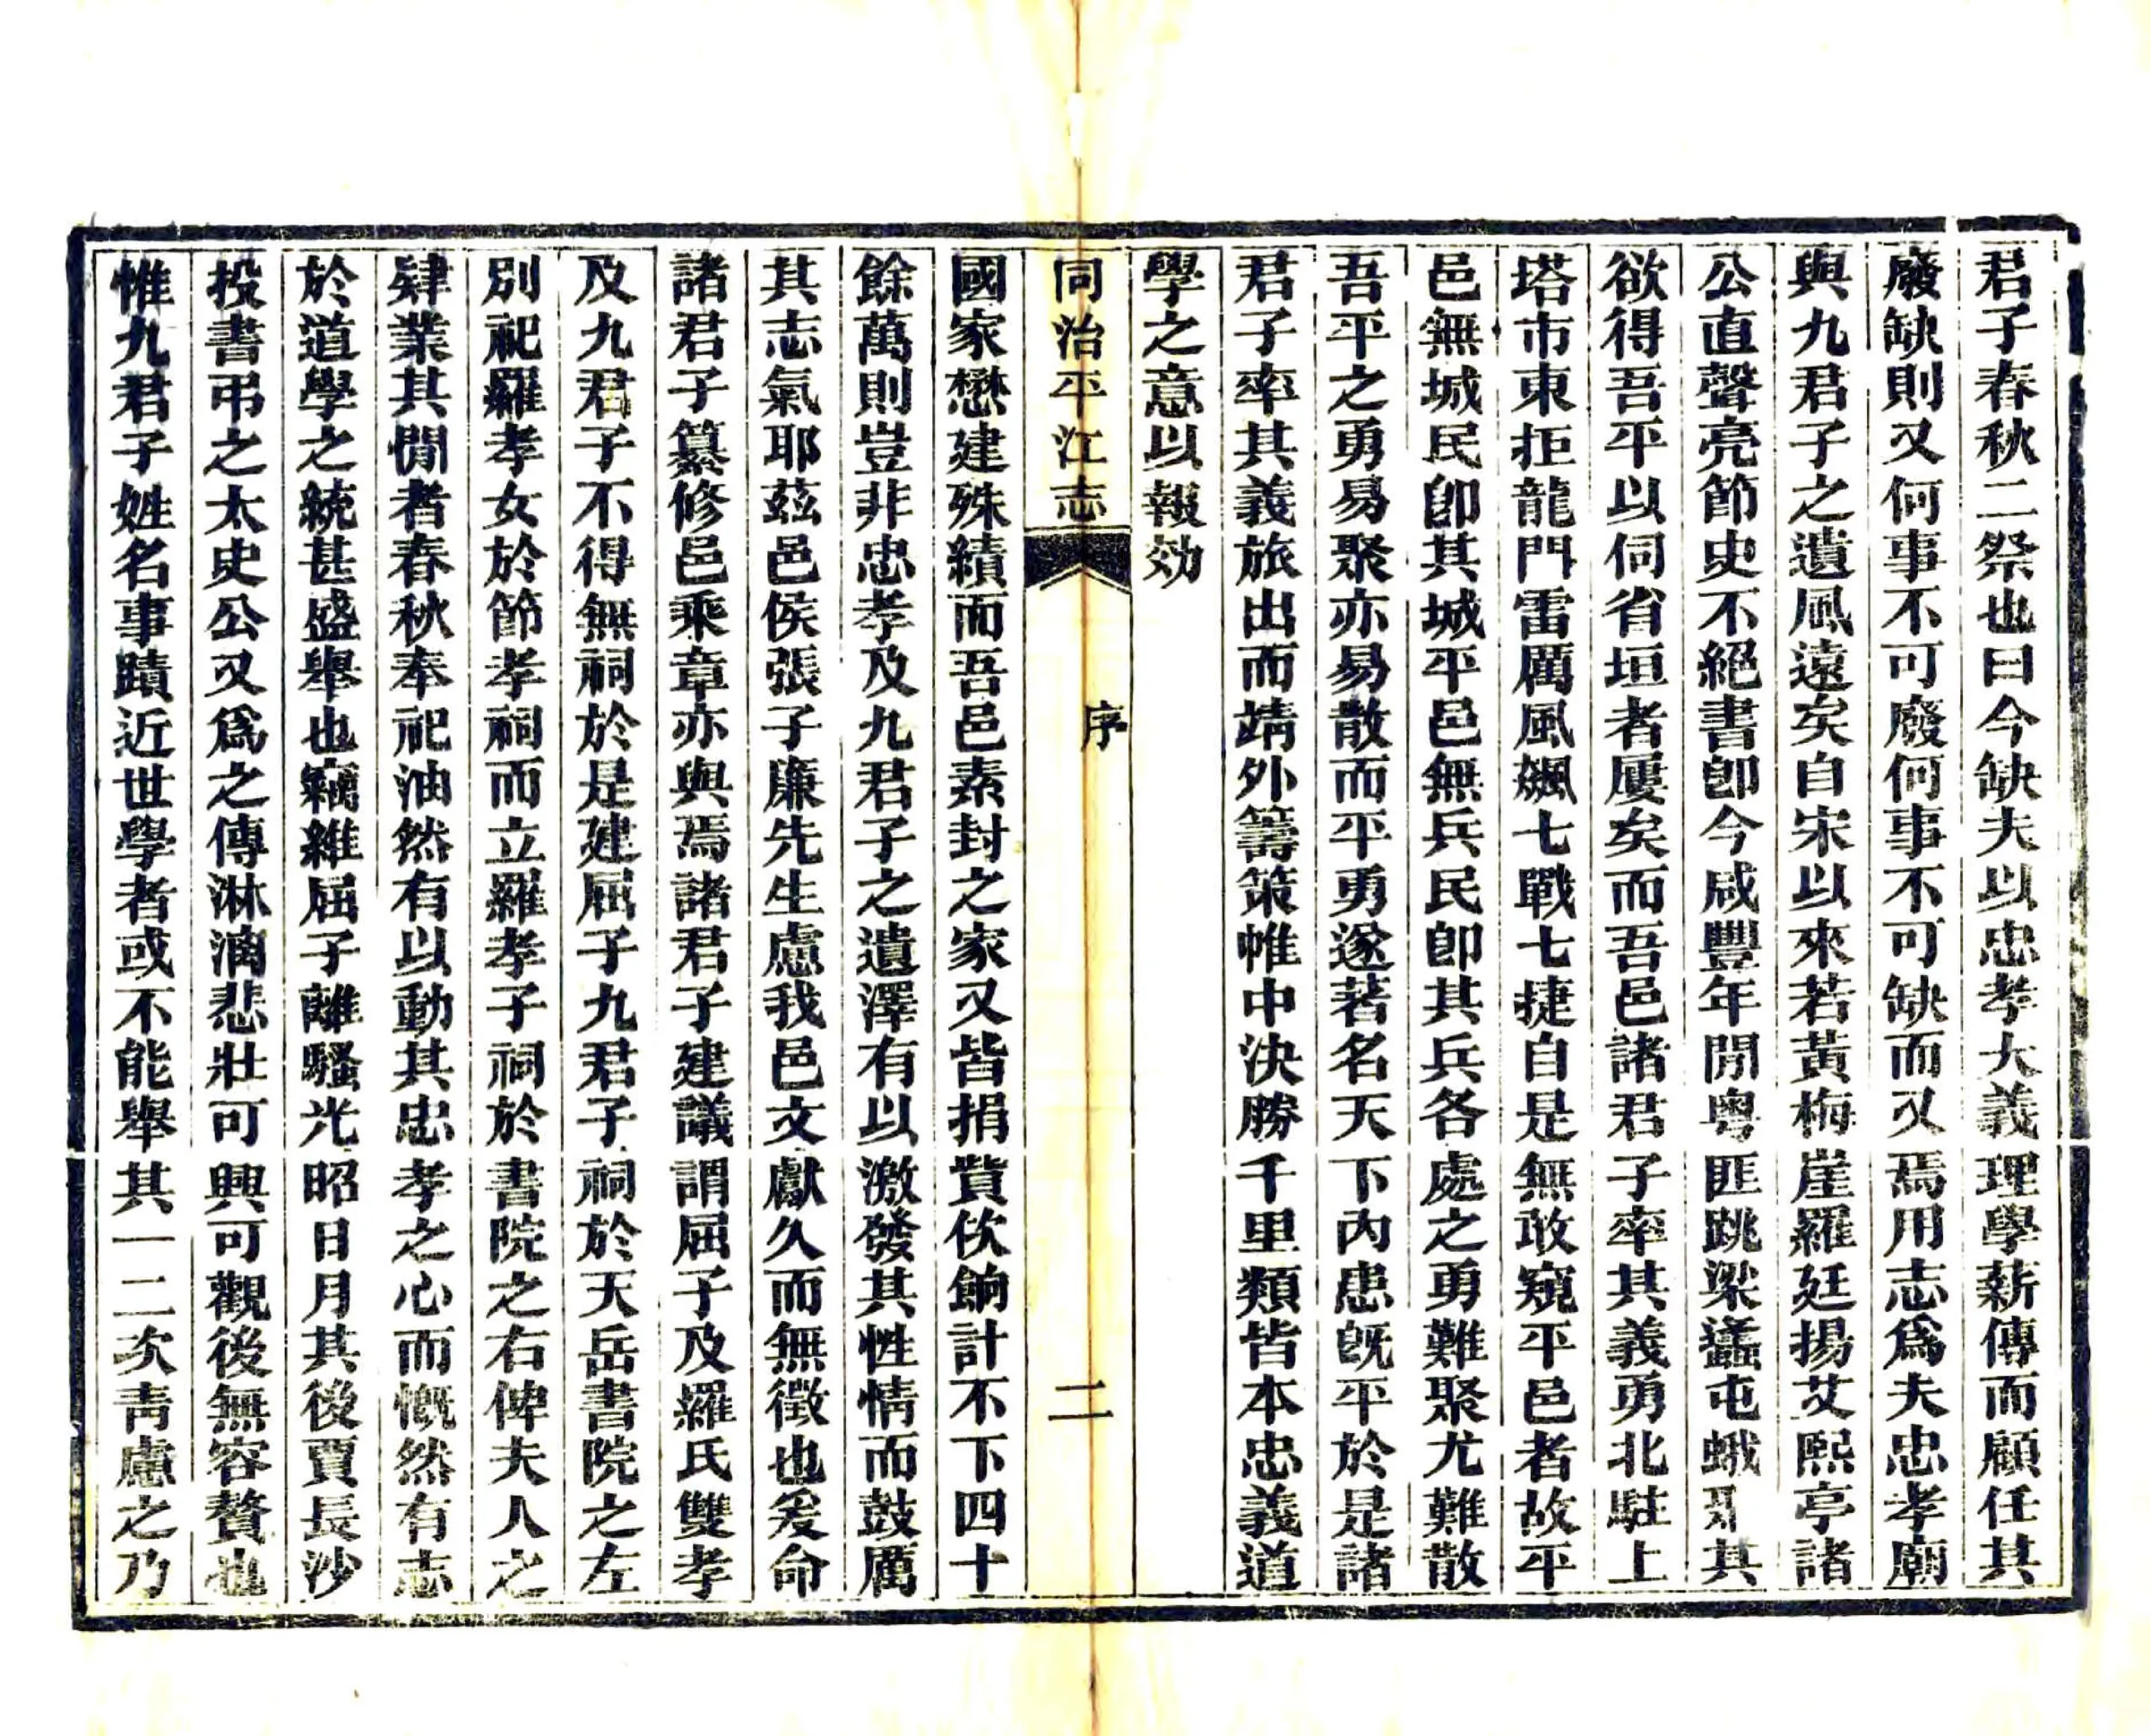 君子春秋二祭也曰今缺夫以忠孝大義理學薪傳而顧任其
廢缺則又何事不可廢何事不可缺而又焉用志爲夫忠孝廟
與九君子之遺風遠矣自宋以來若黃梅崖羅廷揚艾熙亭諸
公直聲亮節史不絕書卽今咸豐年閒粤匪跳梁蠭屯蛾其
欲得吾平以伺省垣者屢矣而吾邑諸君子率其義勇北駐上
塔市東拒龍門雷厲風飆七戰七捷自是無敢窺平邑者故平
邑無城民卽其城平邑無兵民卽其兵各處之勇難聚尤難散
吾平之勇易聚亦易散而平勇遂著名天下內患旣平於是諸
君子率其義旅出而靖外籌策帷中決勝千里類皆本忠義道
學之意以報効
同治平江志 序 二
國家懋建殊績而吾邑素封之家又皆捐貲佽餉計不下四十
餘萬則豈非忠孝及九君子之遺澤有以激發其性情而鼓厲
其志氣耶茲邑侯張子廉先生慮我邑文獻久而無徵也爰命
諸君子纂修邑乘章亦與焉諸君子建議謂屈子及羅氏雙孝
及九君子不得無祠於是建屈子九君子祠於天岳書院之左
別祀羅孝女於節孝祠而立羅孝子祠於書院之右俾夫人之
肄業其閒者春秋奉祀油然有以動其忠孝之心而慨然有志
於道學之統甚盛舉也竊維屈子離騷光昭日月其後賈長沙
投書弔之太史公又爲之傳淋漓悲壯可興可觀後無容贅也
惟九君子姓名事蹟近世學者或不能舉其一二次靑慮之乃